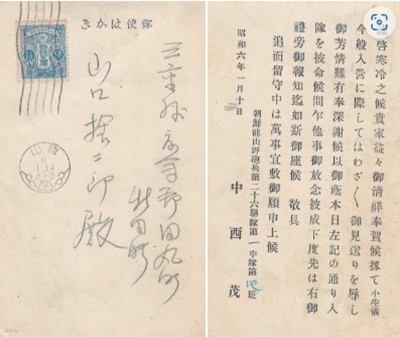 郵便はかき
三重縣度會郡田丸町
山口捨二郎殿
啓寒冷之候貴家益々御清祥奉賀候扨て小生儀
今般入營に際してはわざ〱御見送りを辱し
御芳情難有奉深謝候以御蔭本日左記の通り入
隊を被命候間乍他事御放念被成下度先は右御
禮旁御報知迄如斯御座候 敬具
追而留守中は萬事宜敷御願申上候
昭和六年一月十日
朝鮮龍山野砲兵第二十六聯隊第一中隊第四班
中西茂